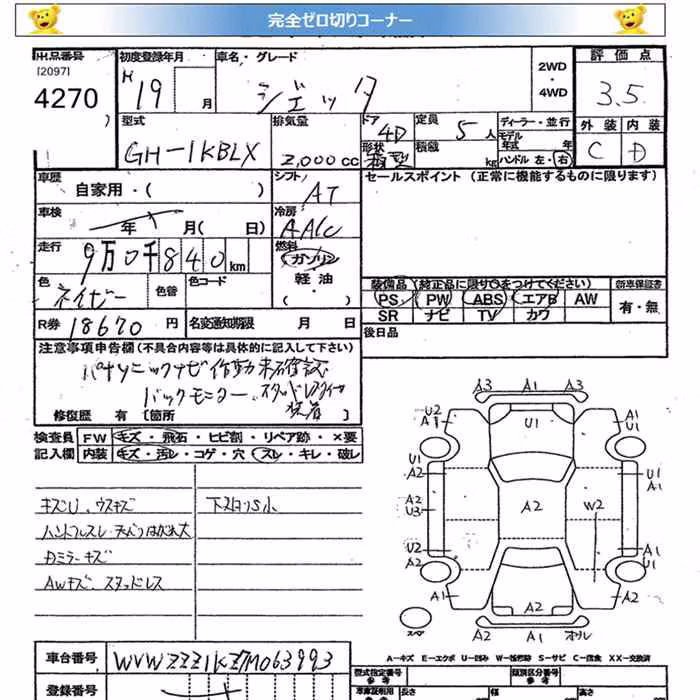 完全ゼロ切りコーナー
出品番号 初度登録年月 車名・グレード 2WD ・ 4WD 評価点
[2097]
4270 H 19 月 ジェッタ 3.5
型式 排気量 ドア 定員 ディーラー・並行 外装 内装
GH-1KBLX 2,000 cc 4D 5 人 モデル年式 年 C D
形状 箱型 積載 kg ハンドル 左・右
車歴 自家用・( ) シフト AT セールスポイント(正常に機能するものに限ります)
車検 年 月( 日) 冷房 AAC
走行 9万0千840km 燃料 ガソリン 軽油
色 ネイビー 色替 色コード ・( ) 装備品(純正品に限り○をつけてください) 新車保証書
PS PW ABS エアB AW 有・無
SR ナビ TV カワ
R券 18670 円 名変通知期限 月 日 後日品
注意事項申告欄(不具合内容等は具体的に記入して下さい)
パナソニックナビ作動未確認
バックモニター、スタッドレスタイヤ装着
修復歴 有 〔箇所
検査員 FW キズ・飛石・ヒビ割・リペア跡・×要
記入欄 内装 キズ・汚レ・コゲ・穴 スレ・キレ・破レ
キズU、ウスキズ 下スリキズ小
ハンドルスレ・天バリはがれ大
Dミラーキズ
AWキズ、スタッドレス
A3 A1 A3
U2 A1 U1 A1 U1
U1 U1 A1
A2 U3 A2 W2
U2 A1 U1
A1 A2 A2
スペア A2 A1 オル
A-キズ E-エクボ U-凹み W-板修跡 S-サビ C-腐食 XX-交換済
車台番号 WVWZZZ1KZ7M063993 型式指定番号 参考 類別区分番号 参考
登録番号 車庫証明利用 参考 長さ 幅 高さ